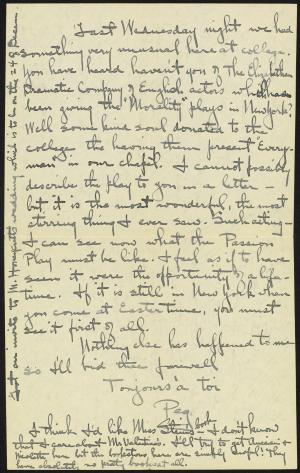 Last Wednesday night we had
something very unusual here at college.
You have heard haven't you of The Elizabethan
Dramatic Company of English actors who have
been giving the "Morality" plays in New York?
Well some kind soul donated to the
college the having them present "Every-
man" in our chapel. I cannot possibly
describe the play to you in a letter –
but it is the most wonderful, the most
stirring thing I ever saw. Such acting –
I can see now what the Passion
Play must be like. I feel as if to have
seen it were the opportunity of a life-
time. If it is still in New York when
you come at Easter time, you must
see it first of all.
Nothing else has happened to me
so I'll bid thee farewell
Toujours à toi
Peg.
I think I'd like Miss book. I don't know
that I care about Mr Valentine's. I'll try to get Aucassin &
Nicolette here but the bookstores here are simply awful! They
have absolutely no pretty books at all.
Got an invite to M. wedding which is to be on the 24 of